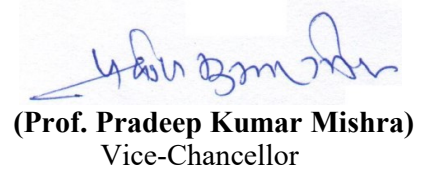 (Prof. Pradeep Kumar Mishra)
Vice-Chancellor